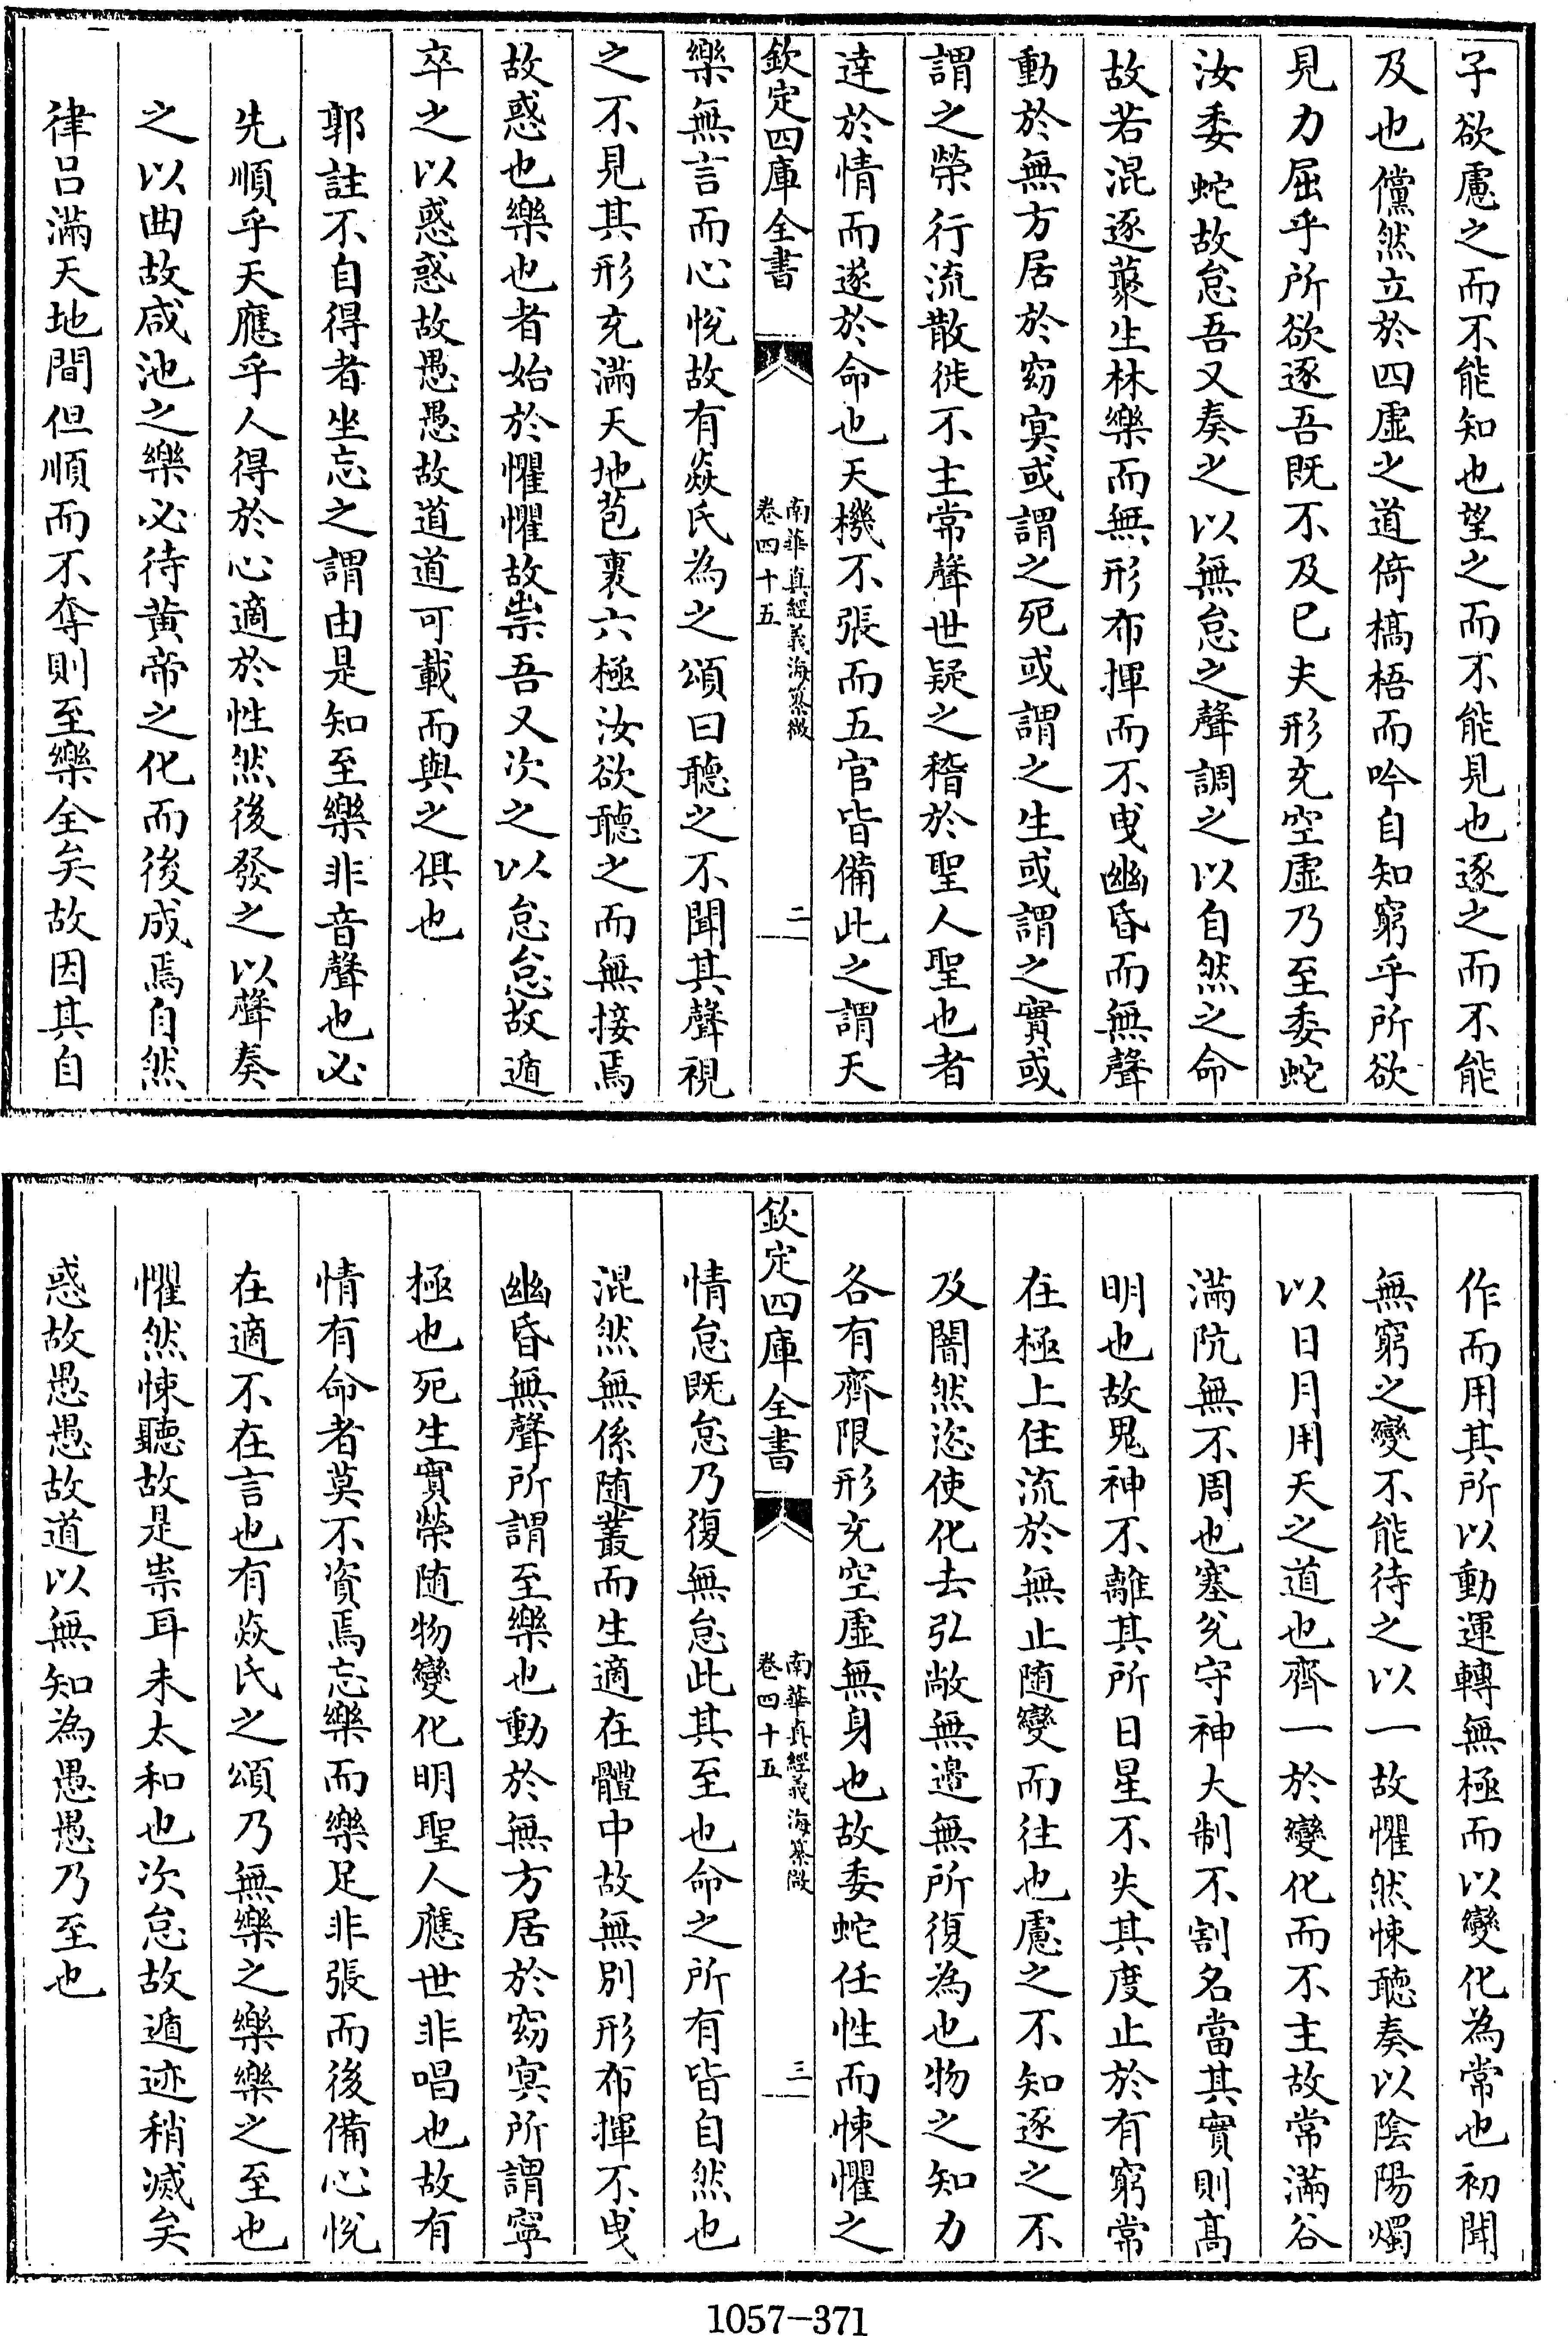 子欲慮之而不能知也望之而不能見也逐之而不能
及也儻然立於四虛之道倚槁梧而吟自知窮乎所欲
見力屈乎所欲逐吾既不及已夫形充空虛乃至委蛇
汝委蛇故怠吾又奏之以無怠之聲調之以自然之命
故若混逐藂生林樂而無形布揮而不曳幽昏而無聲
動於無方居於窈冥或謂之死或謂之生或謂之實或
謂之榮行流散徙不主常聲世疑之稽於聖人聖也者
達於情而遂於命也天機不張而五官皆備此之謂天
欽定四庫全書
南華真經義海纂微
卷四十五
二
樂無言而心悅故有焱氏為之頌曰聽之不聞其聲視
之不見其形充滿天地苞裹六極汝欲聽之而無接焉
故惑也樂也者始於懼懼故祟吾又次之以怠怠故遁
卒之以惑惑故愚愚故道道可載而與之俱也
郭註不自得者坐忘之謂由是知至樂非音聲也必
先順乎天應乎人得於心適於性然後發之以聲奏
之以曲故咸池之樂必待黃帝之化而後成焉自然
律呂滿天地間但順而不奪則至樂全矣故因其自
作而用其所以動運轉無極而以變化為常也初聞
無窮之變不能待之以一故懼然悚聽奏以陰陽燭
以日月用天之道也齊一於變化而不主故常滿谷
滿阬無不周也塞兌守神大制不割名當其實則高
明也故鬼神不離其所日星不失其度止於有窮常
在極上住流於無止随變而往也慮之不知逐之不
及闇然恣使化去弘敞無邊無所復為也物之知力
各有齊限形充空虛無身也故委蛇任性而悚懼之
欽定四庫全書
南華真經義海纂微
卷四十五
三
情怠既怠乃復無怠此其至也命之所有皆自然也
混然無係随叢而生適在體中故無別形布揮不曳
幽昏無聲所謂至樂也動於無方居於窈冥所謂寧
極也死生實榮随物變化明聖人應世非唱也故有
情有命者莫不資焉忘樂而樂足非張而後備心悅
在適不在言也有焱氏之頌乃無樂之樂樂之至也
懼然悚聽故是祟耳未太和也次怠故遁迹稍滅矣
惑故愚愚故道以無知為愚愚乃至也
1057-371